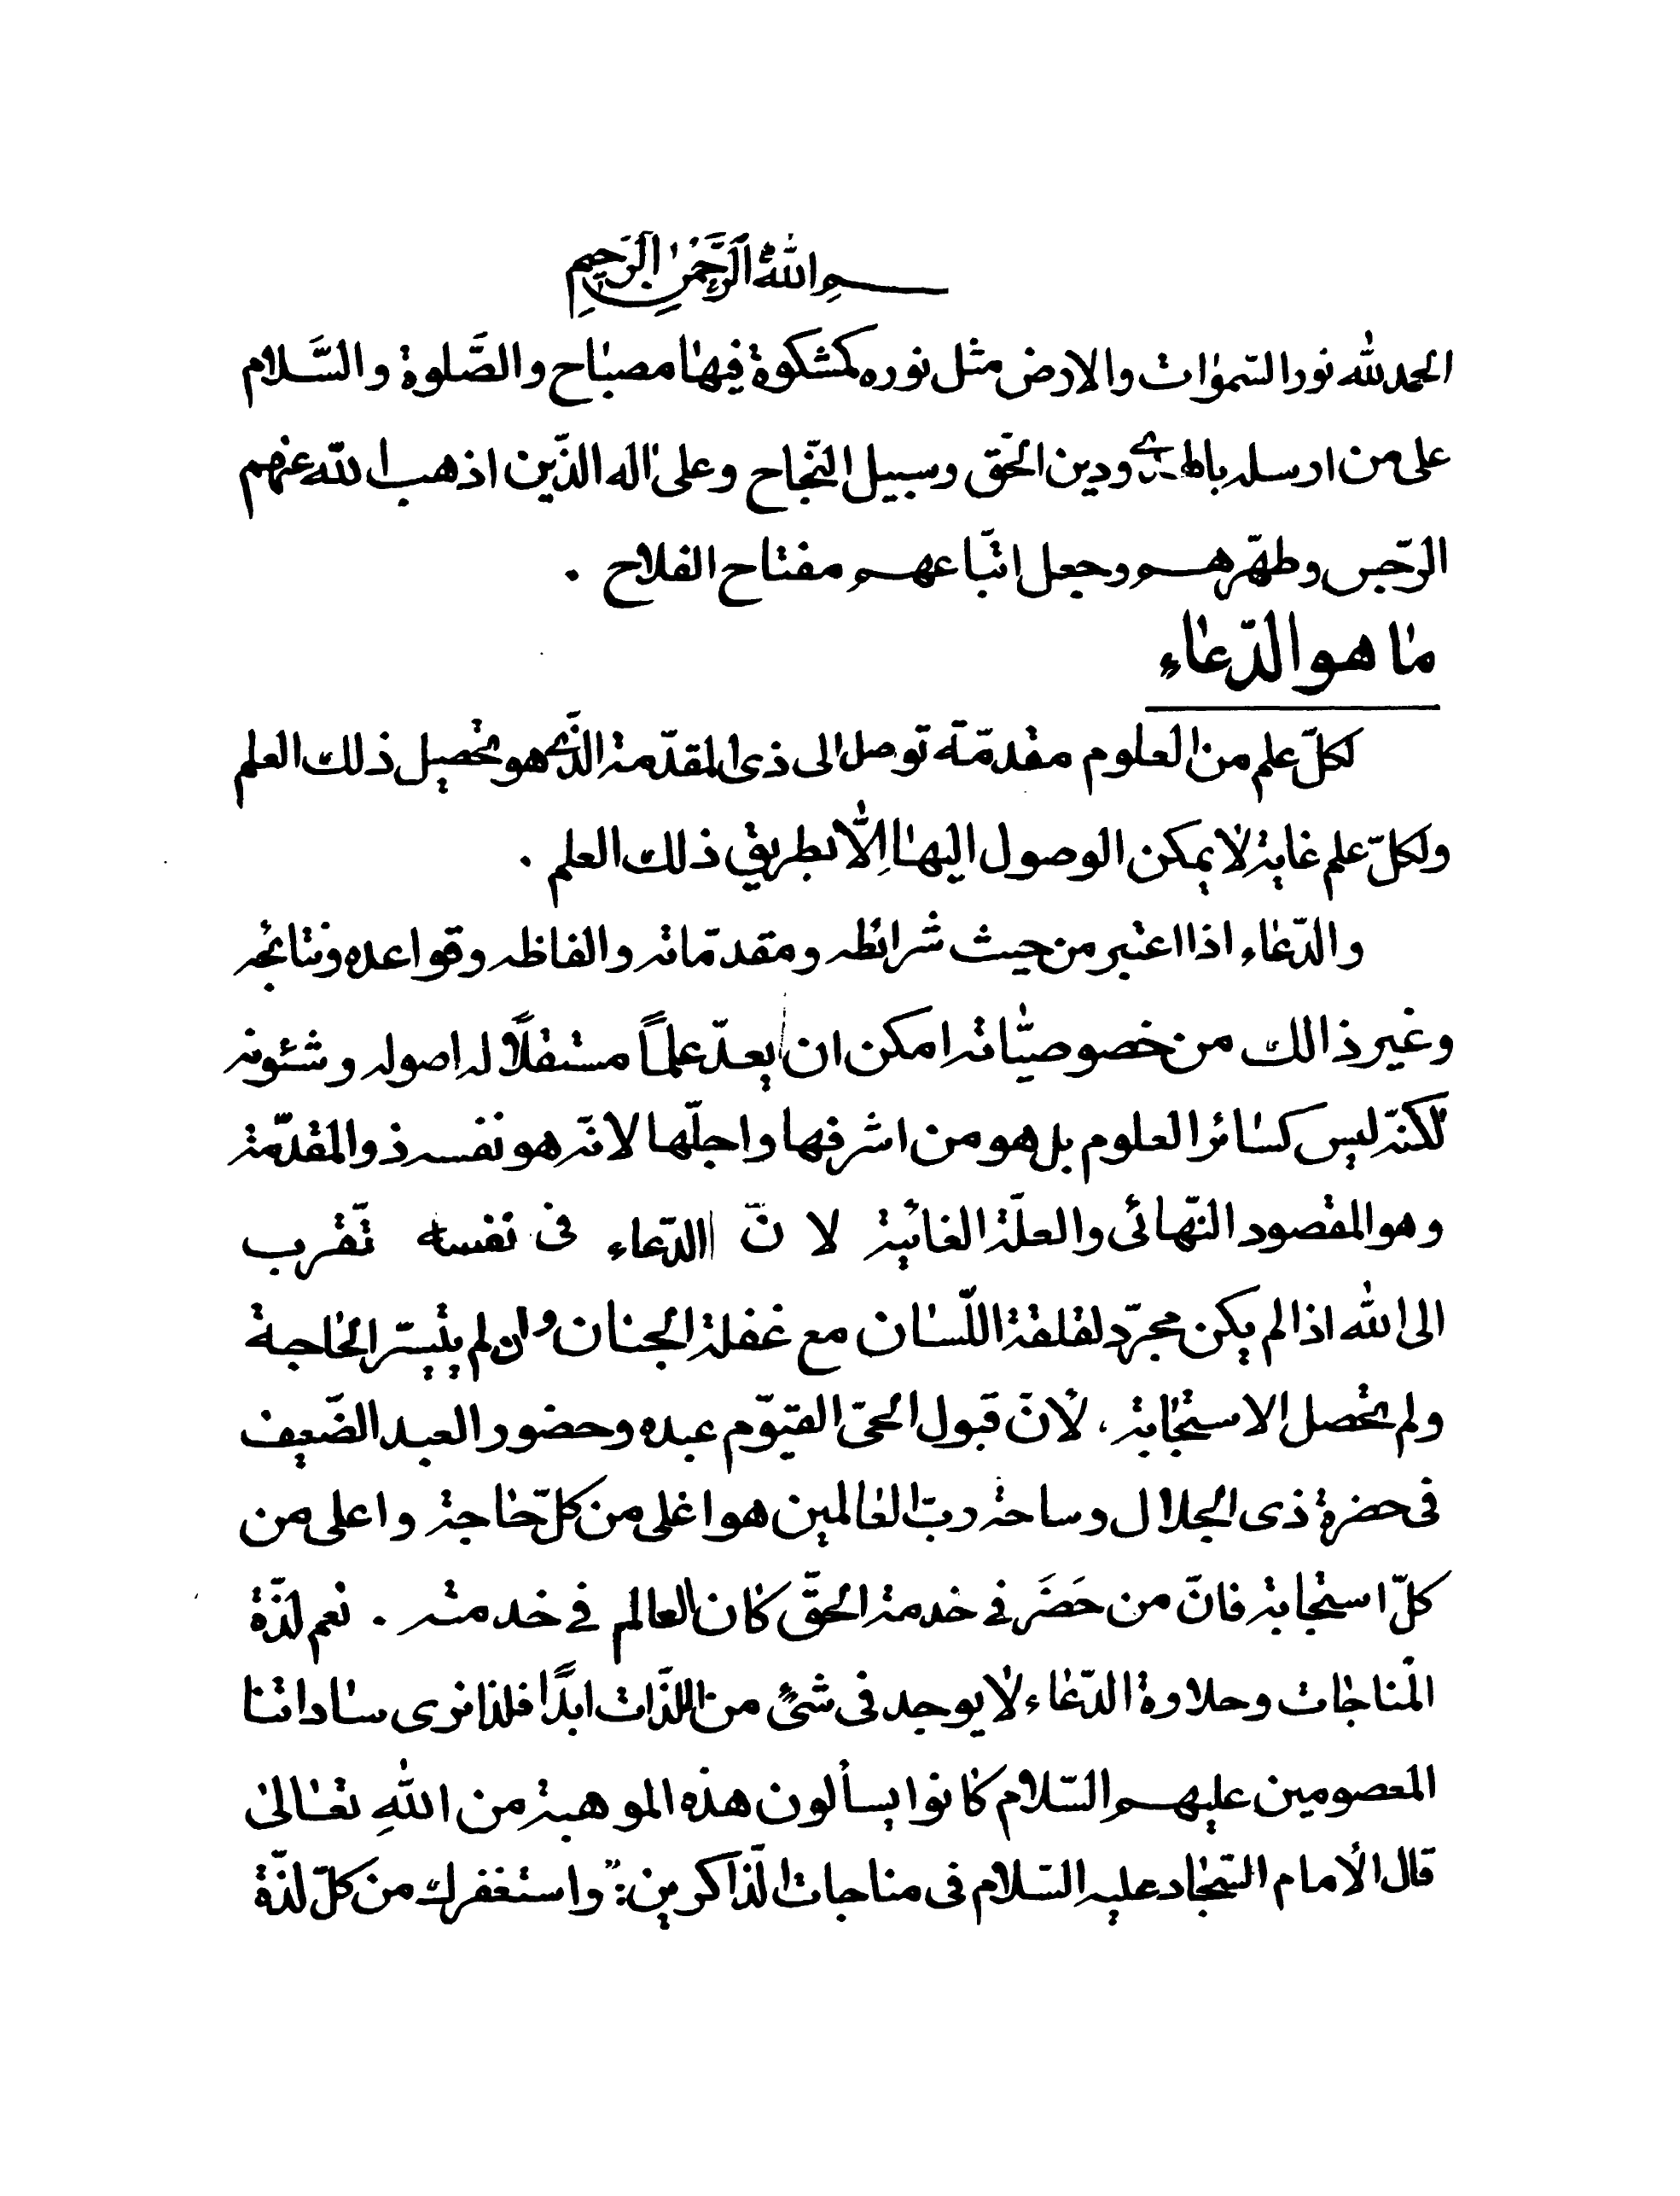 بسم الله الرحمن الرحيم
الحمد لله نور السّموات والارض مثل نوره كمشكوة فيها مصباح والصَّلوة والسَّلام
على من ارسله بالهدى ودين الحَقّ وسبيل النّجاح وعلى اله الذّين اذهب الله عنهم
الرّجس وطهّرهم وجعل اتّباعهم مفتاح الفلاح .
ما هو الدّعاء
لكلّ علم من العلوم مقدمّة توصل الى ذى المقدّمة الذّى هو تحصيل ذلك العلم
ولكلّ علم غاية لا يمكن الوصول اليها اِلّا بطريق ذلك العلم .
والدّعاء اذا اعتبر من حيث شرائطه ومقدمّاته والفاظه وقواعده ونتائجه
وغير ذالك من خصوصيّاته امكن ان يعدّ علماً مستقلًا له اصوله وشئونه
لكنّه ليس كسائر العلوم بل هو من اشرفها واجلّها لانّه هو نفسه ذو المقدّمة
وهو المقصود النّهائى والعلّة الغائية لا نّ الدّعاء فى نفسه تّقرب
الى الله اذا لم يكن مجرّد لقلقة اللّسان مع غفلة الجنان وان لم يتيسّر الحاجة
ولم تحصل الاستجابة، لأنّ قبول الحىّ القيوّم عبده وحضور العبد الضّعيف
فى حضرة ذى الجلال وساحة ربّ العالمين هو اغلى من كلّ حاجة واعلى من
كلّ استجابة فانّ من حَضَر فى خدمة الحقّ كان العالم فى خدمته . نعم لذّة
المناجات وحلاوة الدّعاء لا يوجد فى شئٍ من اللذّات ابدًا فلذا نرى ساداتنا
المعصومين عليهم السّلام كانوا يسألون هذه الموهبة من اللهِ تعالى
قال الأمام السّجّاد عليه السّلام فى مناجات الّذاكرين : " واستغفرك من كلّ لذّة